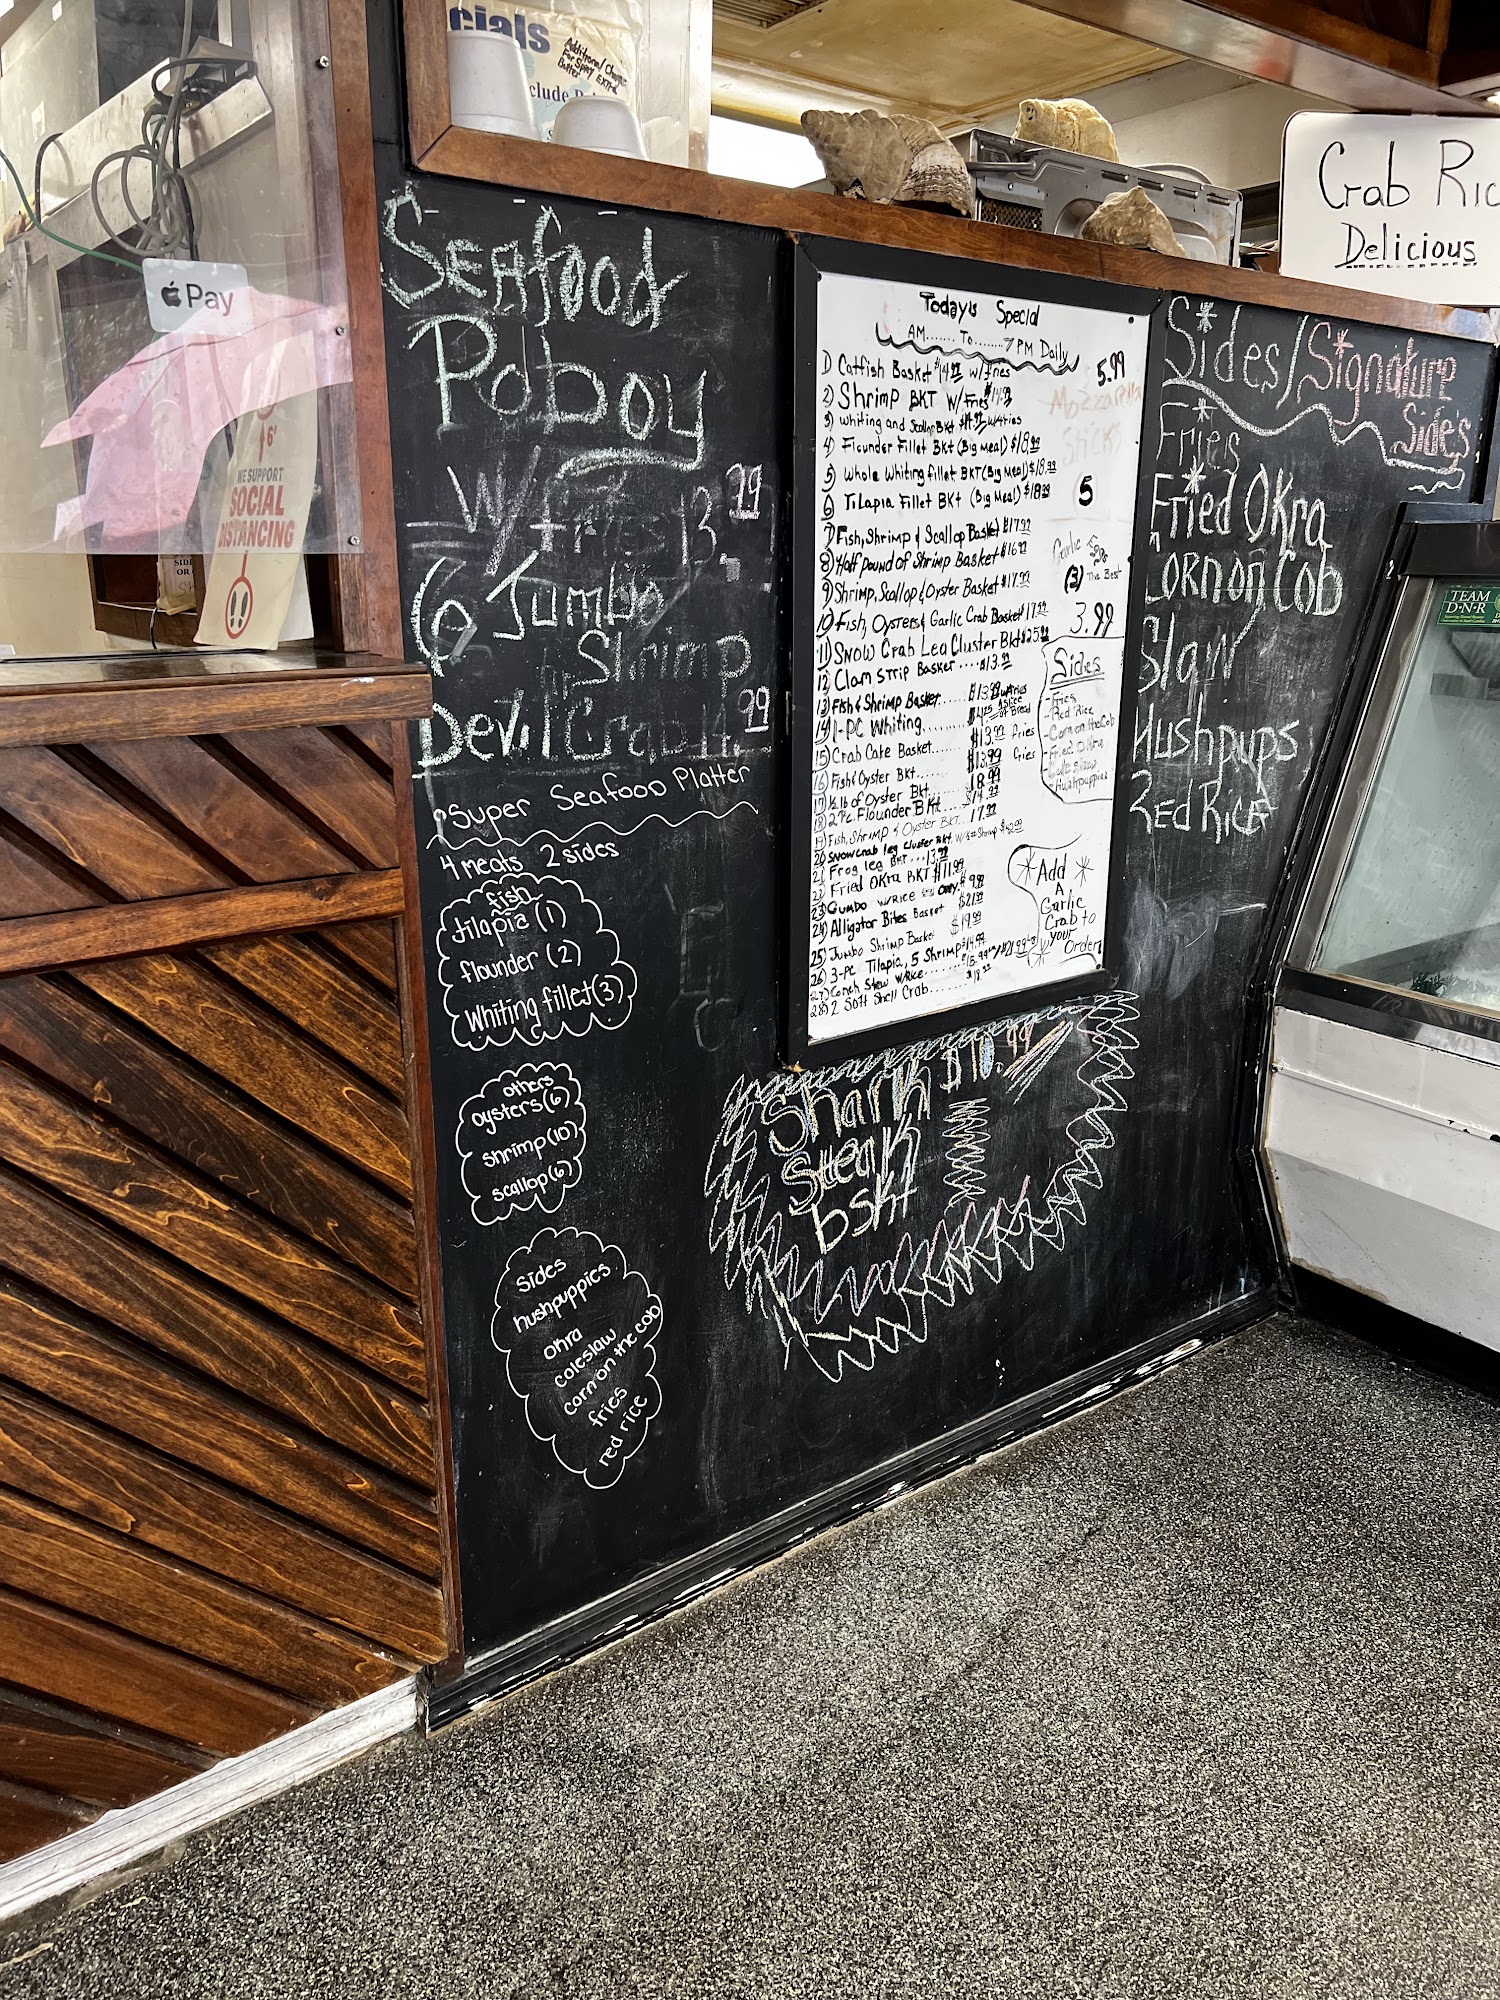 cials
Additional Charge
For Spray Extra
Butter
clude
Pay
6'
WE SUPPORT
SOCIAL
DISTANCING
Crab Ric
Delicious
TEAM
D·N·R
Seafood
Poboy
W/ fries 13.99
6 Jumbo
Shrimp
Devil Crab 14.99
Super Seafood Platter
4 meats 2 sides
fish
tilapia (1)
flounder (2)
whiting fillet (3)
others
oysters (6)
shrimp (10)
scallop (6)
Sides
hushpuppies
okra
coleslaw
corn on the cob
fries
red rice
Today's Special
AM........ To........7 PM Daily
1) Catfish Basket $14.99 w/fries
2) Shrimp BKT W/Fries $14.99
3) Whiting and Scallop Bkt w/fries
4) Flounder Fillet Bkt (Big Meal) $18.99
5) Whole Whiting fillet BKT (Big Meal) $18.99
6) Tilapia Fillet BKt (Big Meal) $18.99
7) Fish, Shrimp & Scallop Basket $17.99
8) Half pound of Shrimp Basket $16.99
9) Shrimp, Scallop & Oyster Basket $17.99
10) Fish, Oysters & Garlic Crab Basket $17.99
11) Snow Crab Leg Cluster Bkt $25.99
12) Clam Strip Basket ....$13.99
13) Fish & Shrimp Basket.....$13.99 w/fries
14) 1-PC Whiting....... A Slice of Bread
15) Crab Cake Basket..... $13.99 fries
16) Fish & Oyster BKt...... $13.99 fries
17) ½ lb of Oyster Bkt.... 18.99
18) 2 Pc. Flounder BKt $14.99
19) Fish, Shrimp & Oyster BKt... 17.99
20) Snow crab leg cluster Bkt. w/ Shrimp
21) Frog leg BKT...13.99
22) Fried Okra BKT $11.99
23) Gumbo w/Rice only $9.99
24) Alligator Bites Basket $21.99
25) Jumbo Shrimp Basket $19.99
26) 3-Pc Tilapia, 5 Shrimp $14.99
27) Conch Stew w/Rice
28) 2 Soft Shell Crab
5.99
Mozzarella
Sticks
5
Garlic Eggs
(3) The Best
3.99
Sides
- Fries
- Red Rice
- Corn on the Cob
- Fried Okra
- Cole slaw
- Hushpuppies
Add
A
Garlic
Crab to
your
Order
Shark $10.99
Steak
bskt
Sides/Signature
Side's
Fries
Fried Okra
Corn on Cob
Slaw
Hushpups
Red Rice